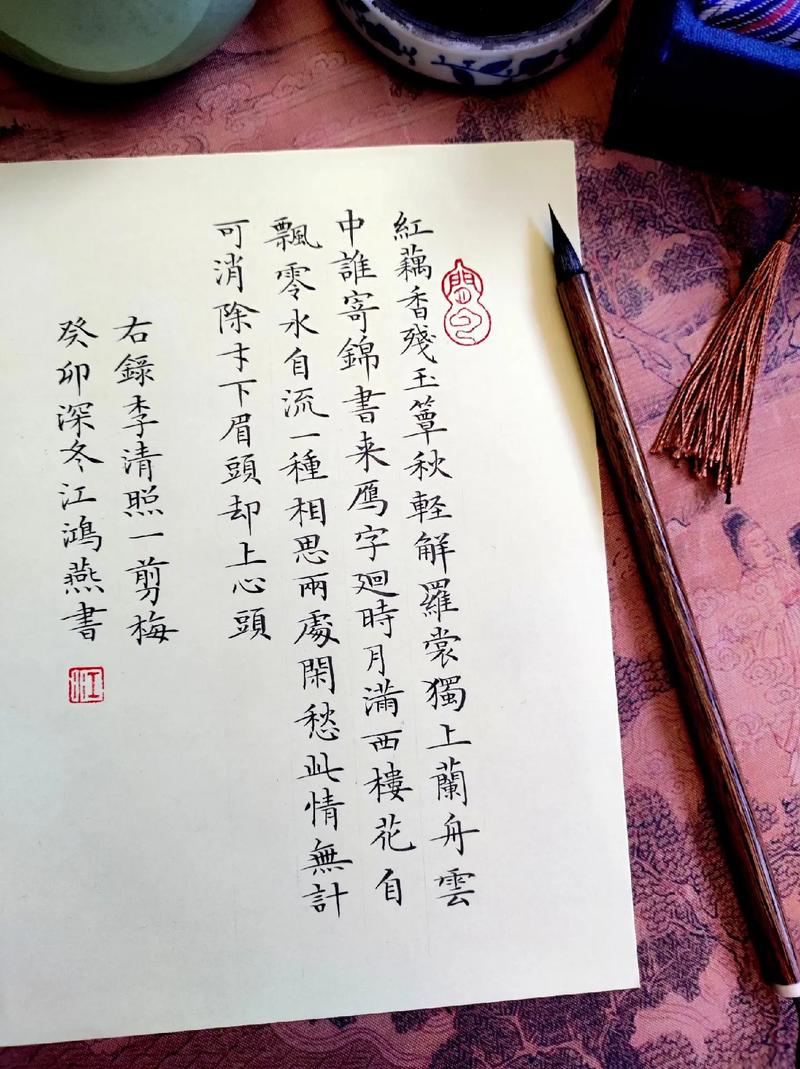 紅藕香殘玉簟秋軽解羅裳獨上蘭舟雲
中誰寄錦書来鴈字廻時月滿西樓花自
飄零水自流一種相思兩處閑愁此情無計
可消除才下眉頭却上心頭
右錄李清照一剪梅
癸卯深冬江鴻燕書